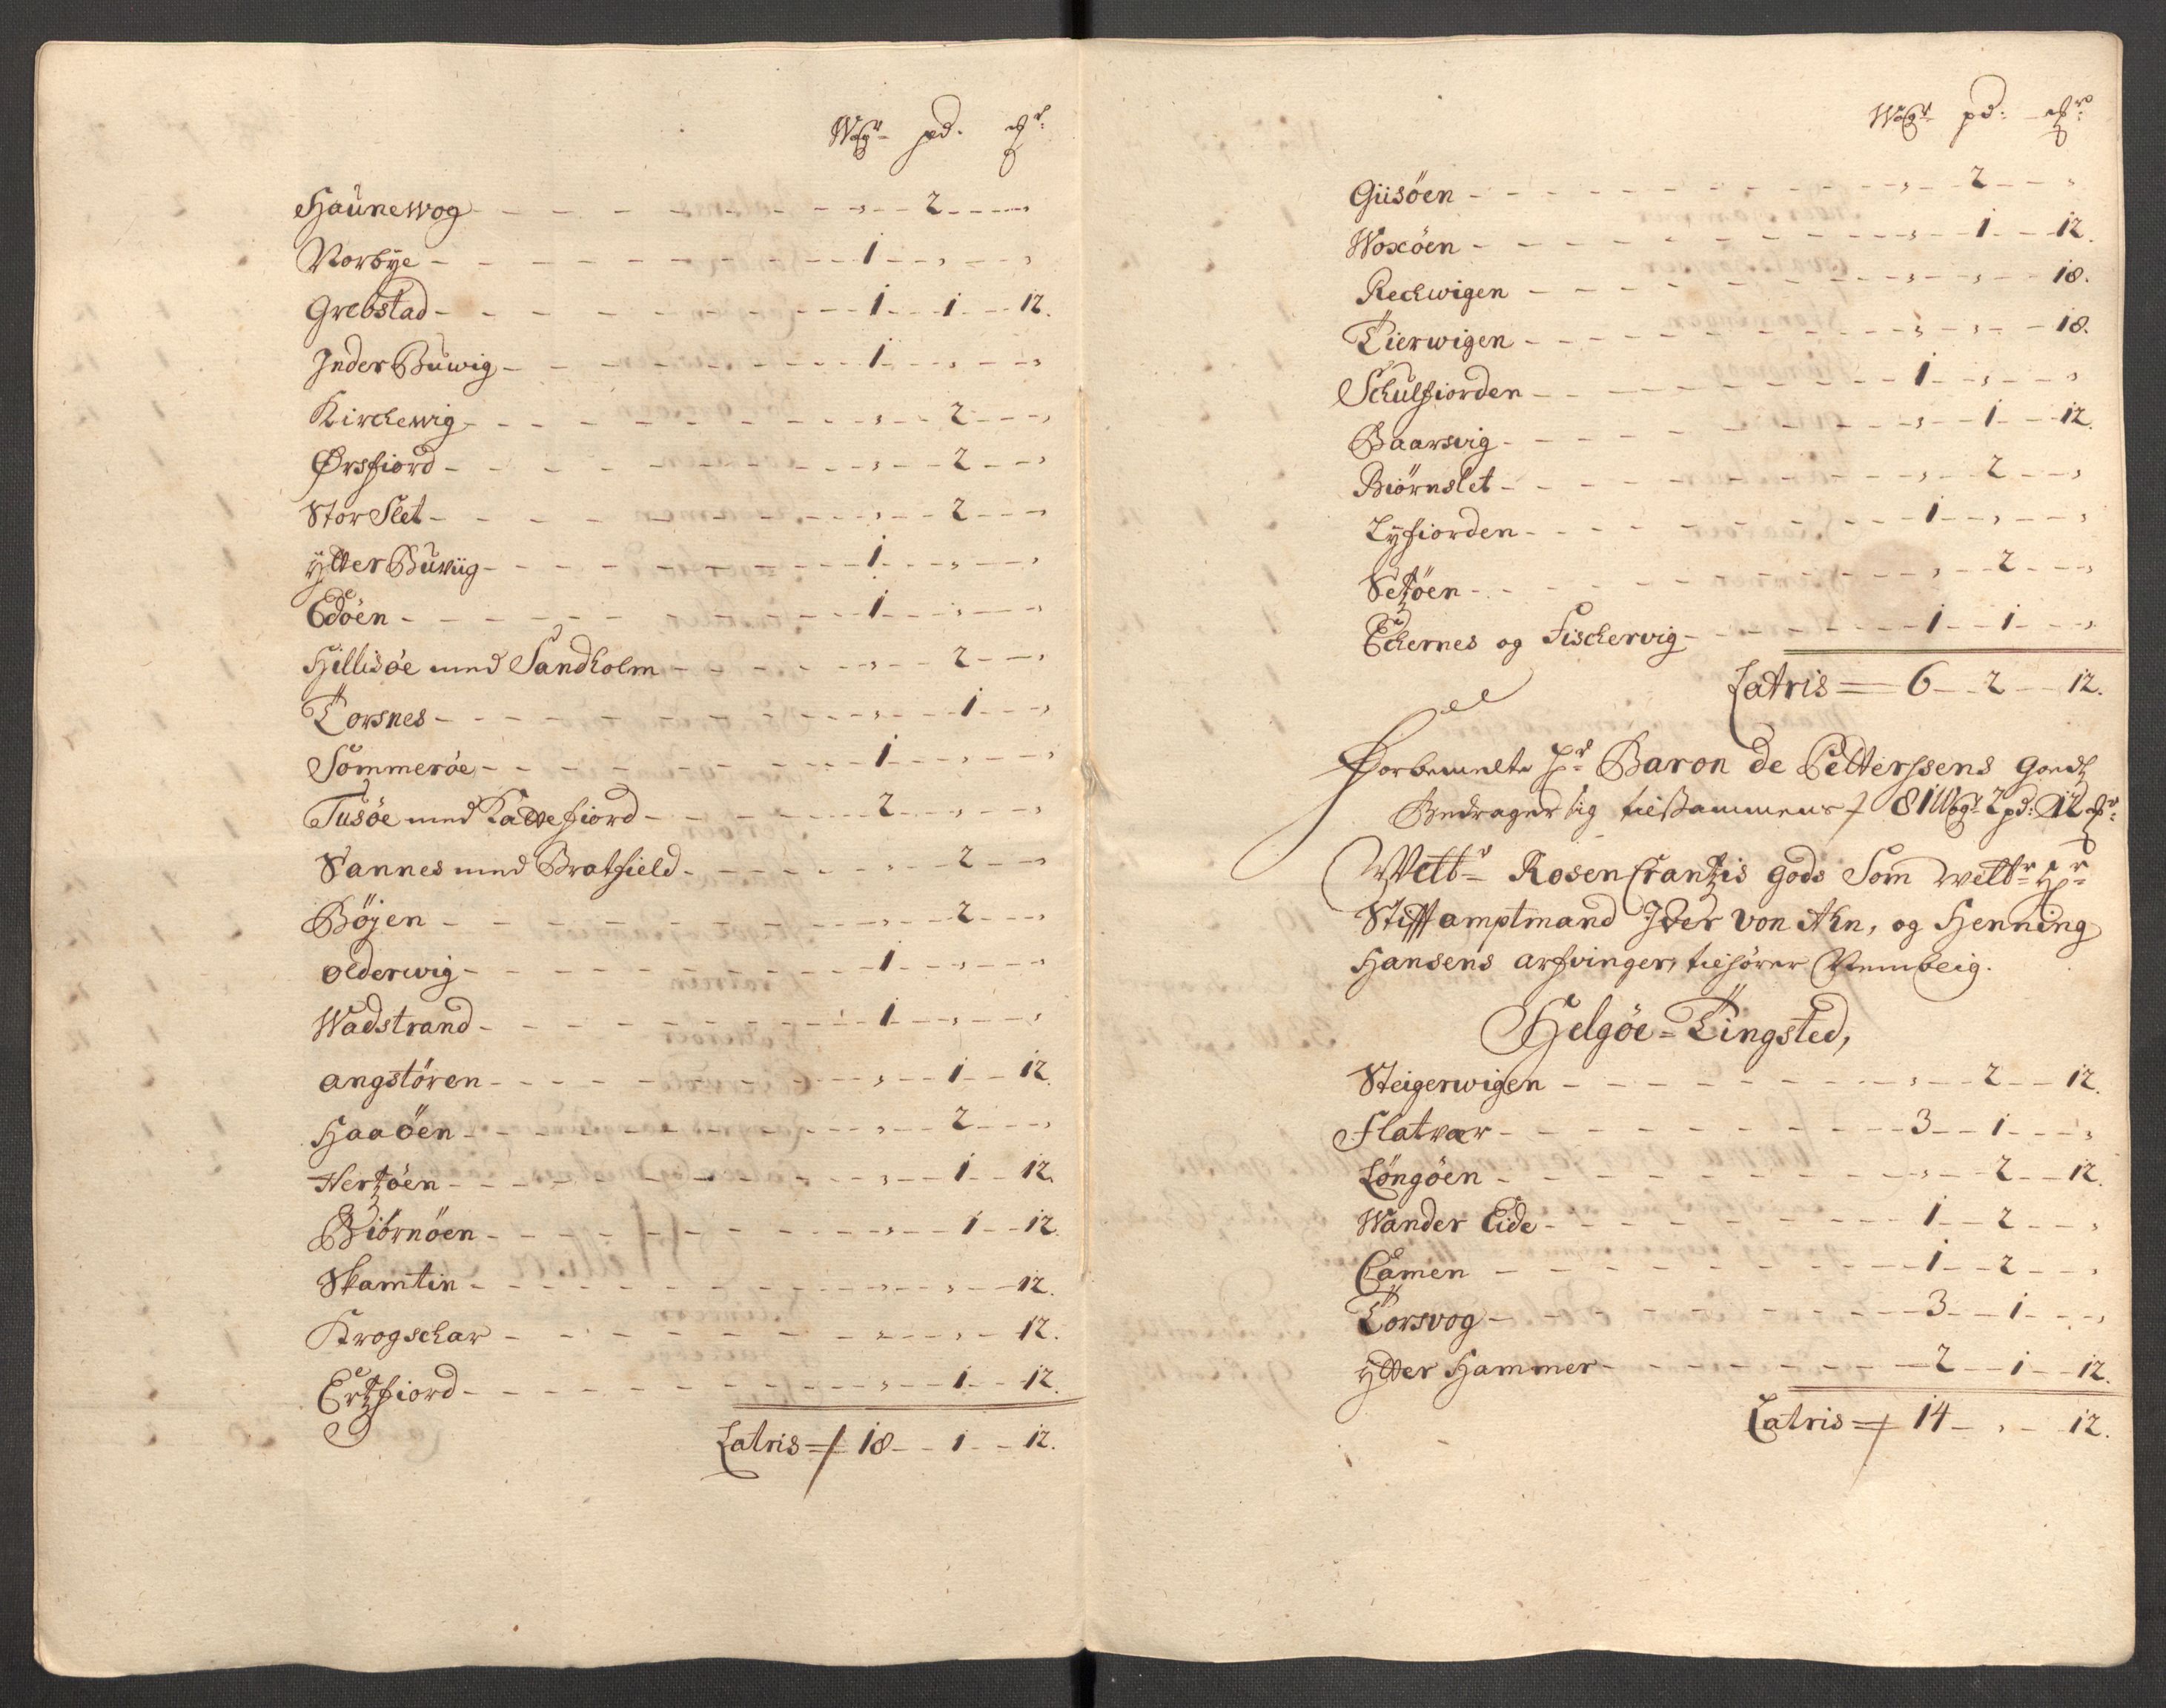 Wogr pd. ℔r:
Haunewog - - - „ - 2 - „
Norbye - - - 1 - „ - „
Grebstad - - - 1 - 1 - 12.
Inder Buwig - - - 1 - „ - „
Kirchewig - - - „ - 2 - „
Ørsfiord - - - „ - 2 - „
Stor Slet - - - „ - 2 - „
ÿtter Buwiig - - - 1 - „ - „
Edöen - - - 1 - „ - „
Hillisöe med Sandholm - - - „ - 2 - „
Torsnes - - - „ - 1 - „
Sommeröe - - - 1 - „ - „
Tusöe med Kattefiord - - - 2 - „ - „
Sannes med Bratfield - - - „ - 2 - „
Böjen - - - „ - 2 - „
Olderwig - - - 1 - „ - „
Wadstrand - - - 1 - „ - „
angstören - - - „ - 1 - 12.
Haaöen - - - „ - 2 - „
Hertzöen - - - „ - 1 - 12.
Biörnöen - - - „ - 1 - 12.
Skamtin - - - „ - „ - 12.
Krogschar - - - „ - „ - 12.
Ertzfiord - - - „ - 1 - 12.
Latris = 18 - 1 - 12.
Wogr pd: ℔r:
Giisöen - - - „ - 2 - „
Woxöen - - - „ - 1 - 12.
Rechwigen - - - „ - „ - 18.
Tierwigen - - - „ - „ - 18.
Schulfiorden - - - 1 - „ - „
Baarsvig - - - „ - 1 - 12.
Biörnslet - - - „ - 2 - „
Lyfiorden - - - 1 - „ - „
Setzöen - - - „ - 2 - „
Echernes og Fischervig - - - 1 - 1 - „
Latris = 6 - 2 - 12.
Forbemelte Hr Baron de Pettersens goedtz
Bedrager sig tilsammens 81 Wogr 2 pd: 12 ℔r:
Wellbr Rosencrantzis gods Som wellbr Hr
Stifftamptmand Ifver von Ahn, og Henning
Hansens arfvinger, tilhörer Nembelig.
Helgöe-Tingsted,
Steigerwigen - - - „ - 2 - 12.
Flatvær - - - 3 - 1 - „
Löngöen - - - „ - 2 - 12.
Wander Eide - - - 1 - 2 - „
Camen - - - 1 - 2 - „
Torsvog - - - 3 - 1 - „
ÿtter Hammer - - - 2 - 1 - 12.
Latris = 14 - „ - 12.